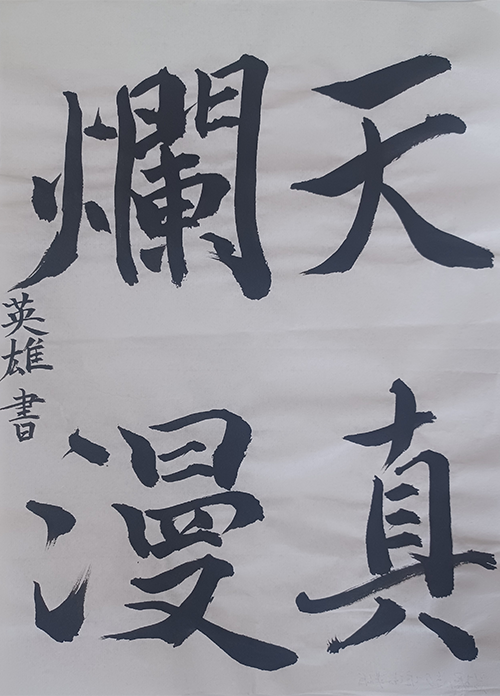 天真
爛漫
英雄書